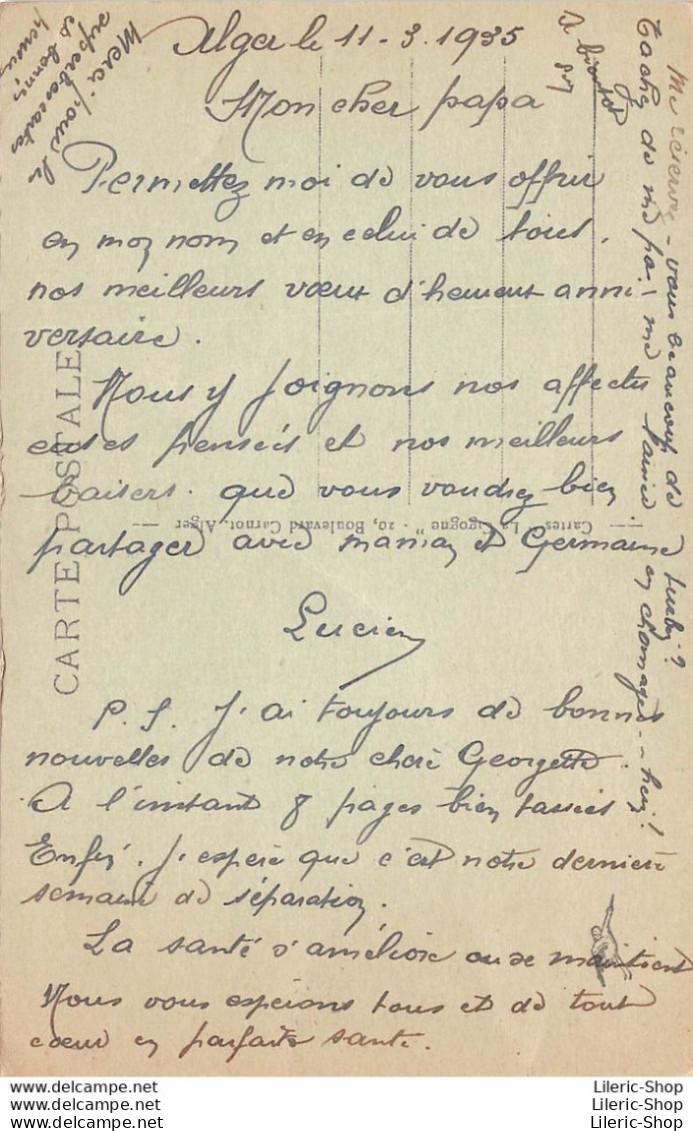 Alger le 11-3.1935
Mon cher papa
Permettez moi de vous offrir
en mon nom et en celui de tous.
nos meilleurs vœux d'heureux anni-
versaire.
Nous y joignons nos affectu
euses pensées et nos meilleurs
baisers. que vous voudrez bien
partager avec maman et Germaine
Lucien
P.S. J'ai toujours de bonnes
nouvelles de notre chère Georgette.
A l'instant 8 pages bien tassées
Enfin. J'espère que c'est notre dernière
semaine de séparation.
La santé s'améliore ou se maintient
Nous vous espérons tous et de tout
cœur en parfaite santé.
Merci pour les
superbes cartes
et bonnes
A bientôt
Me réserve-vous beaucoup de turbin?
Tache de ne pas me laisser en chomage-hein!
CARTE POSTALE
Cartes "La Cigogne" - 20, Boulevard Carnot, Alger
https://www.delcampe.net
Lileric-Shop
https://www.delcampe.net
Lileric-Shop
https://www.delcampe.net
Lileric-Shop